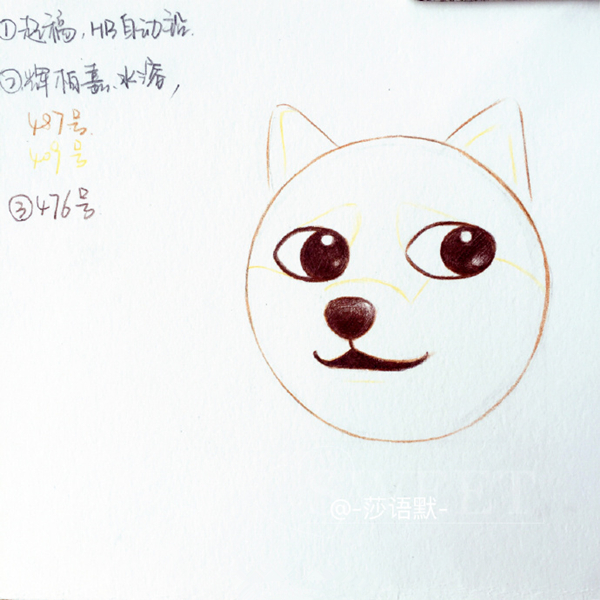 ①起稿,HB自动铅.
②辉柏嘉.水溶,
487号.
409号
③476号
@-莎语默-